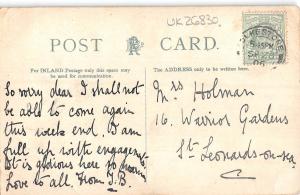 UK26830
POST CARD.
For INLAND Postage only this space may be used for communication.
The ADDRESS only to be written here.
So sorry dear I shall not
be able to come again
this week end. I am
full up with engagements
It is glorious here
Love to all. From J.B.
Mrs Holman
16, Warrior Gardens
St Leonards-on-Sea
FOLKESTONE
5.45PM
06